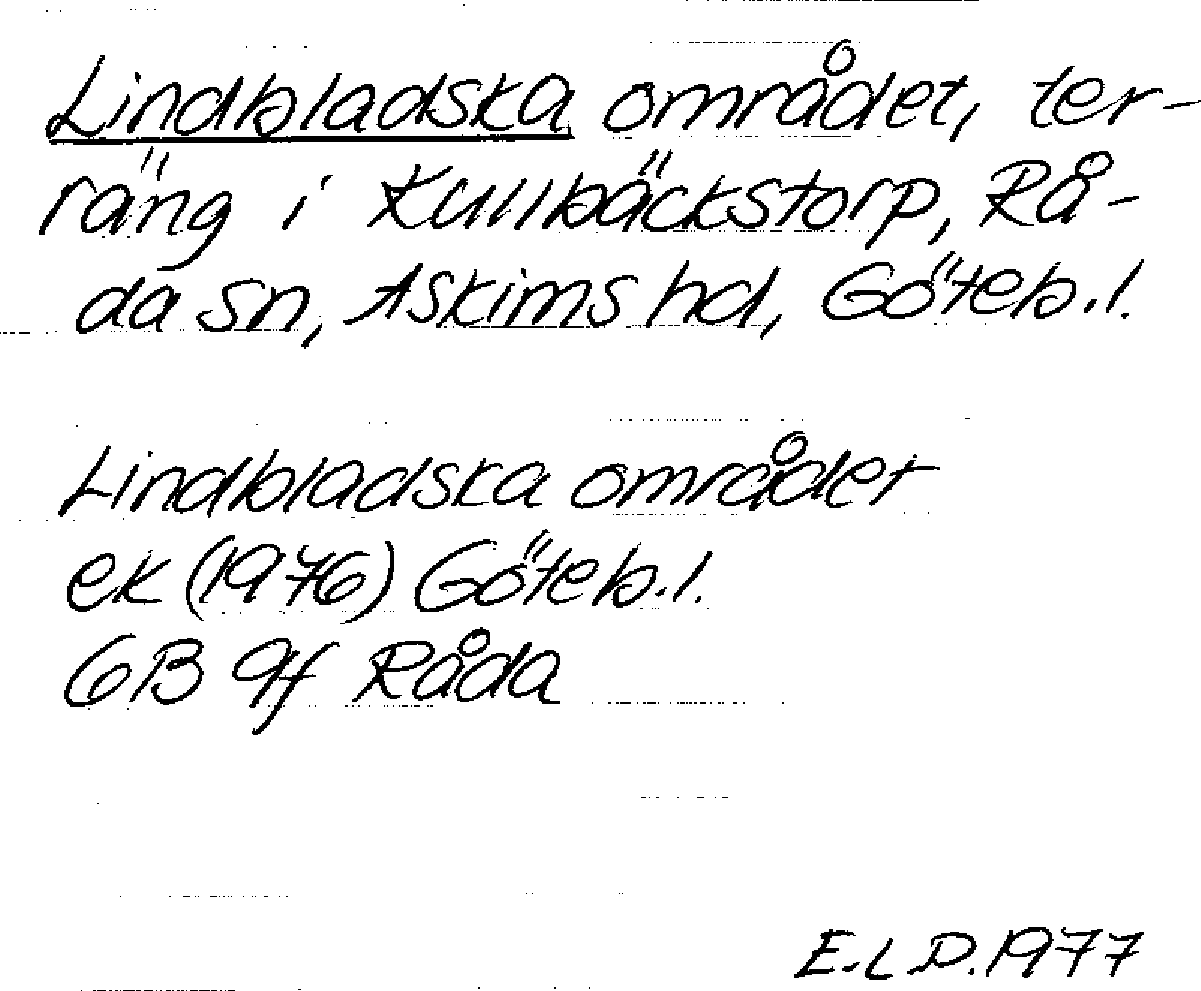 Lindbladska området, ter-
räng i Kullbäckstorp, Rå-
da sn, Askims hd, Göteb.l.
Lindbladska området
ek (1976) Göteb.l.
6B 9f Råda
E.L.D. 1977